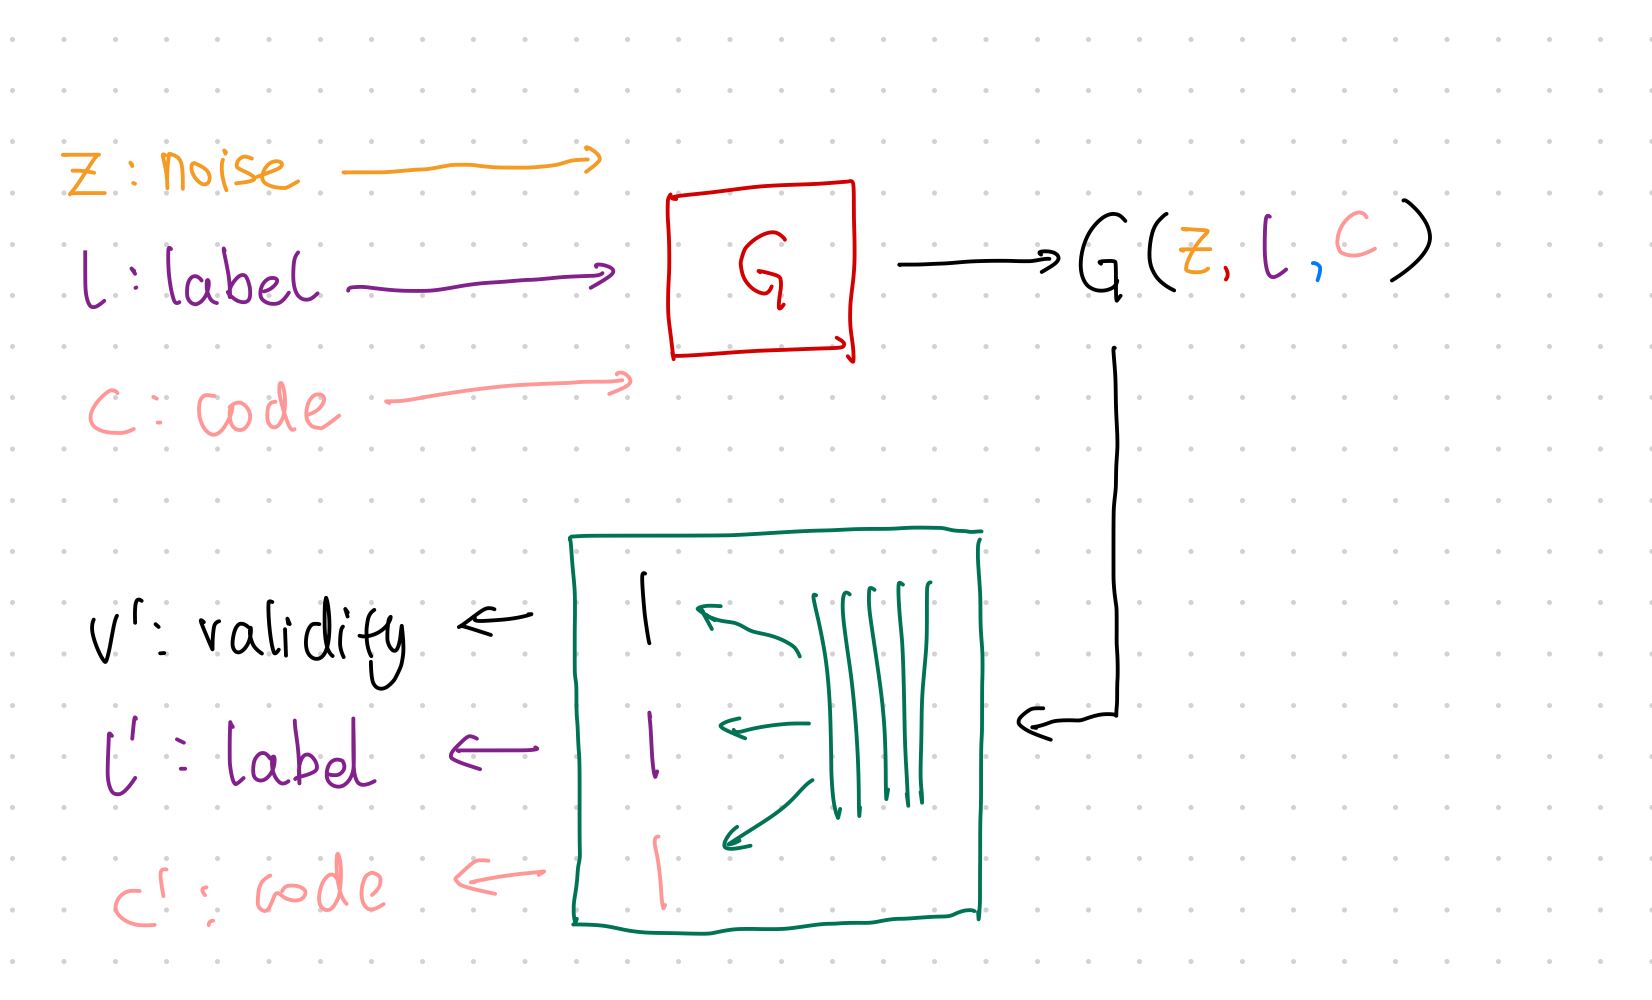 z : noise
l : label
c : code
G
G(z, l, c)
v' : validity
l' : label
c' : code